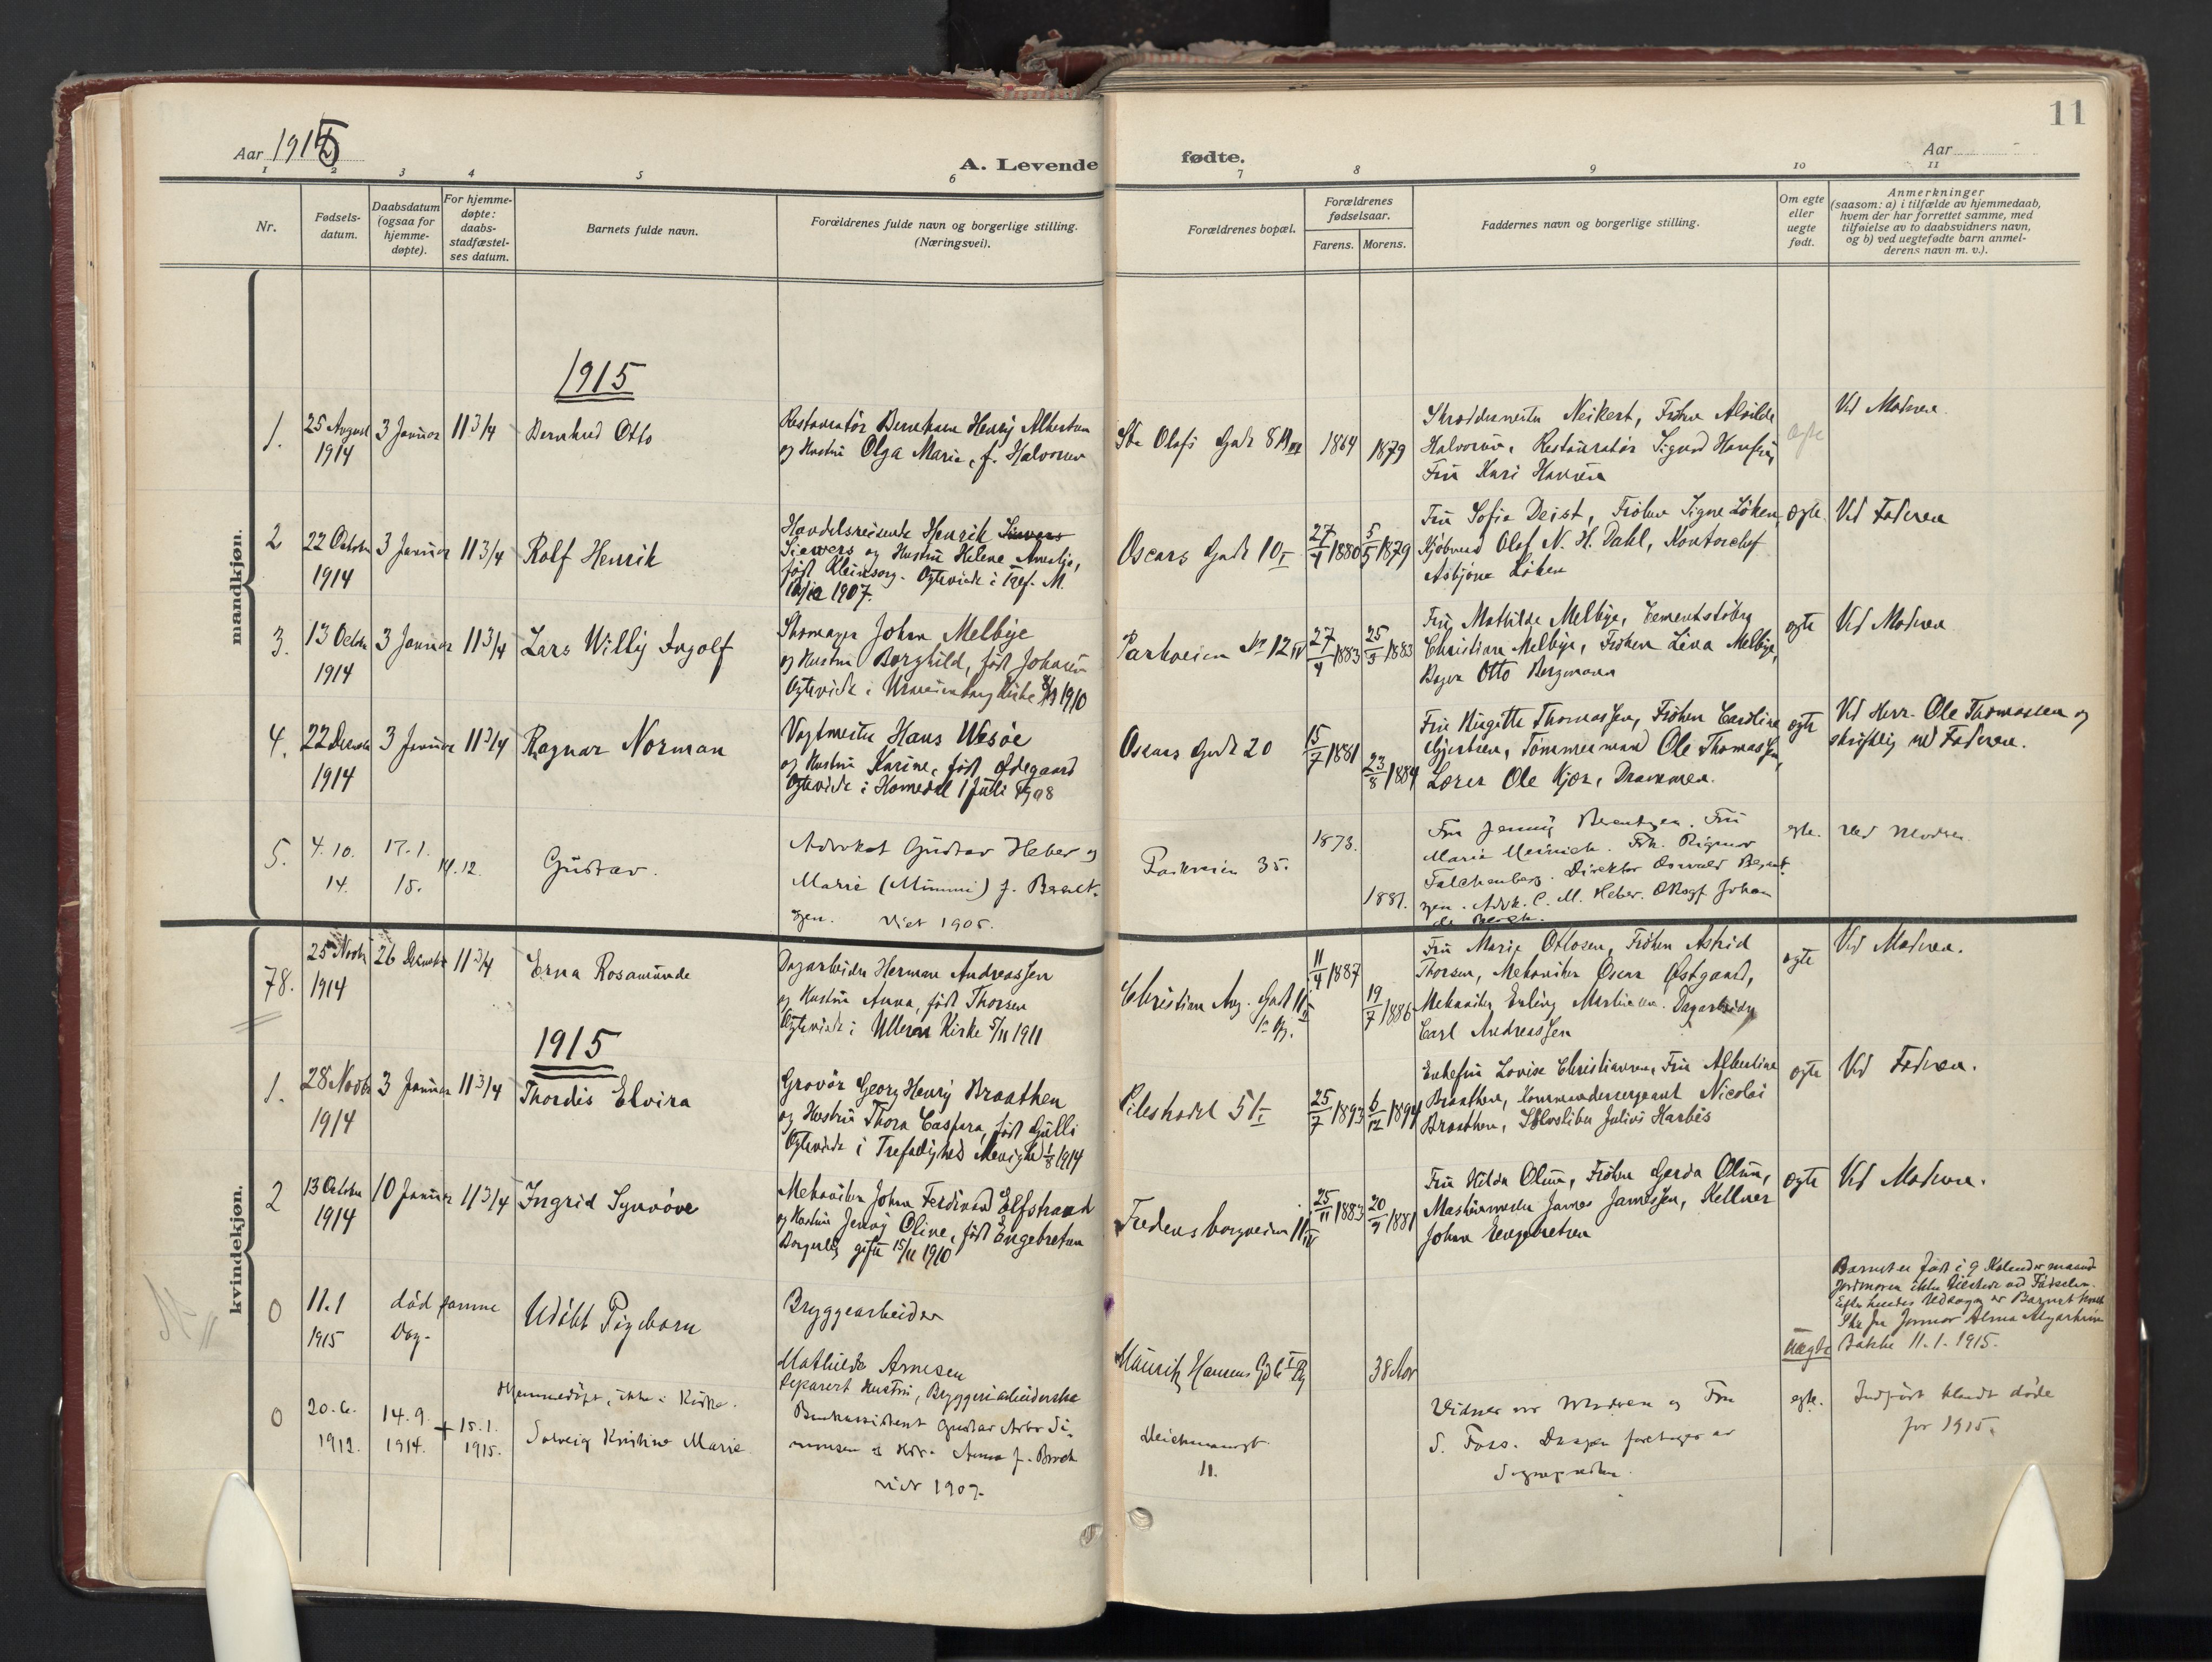 11
Aar 1915
A. Levende fødte.
Aar
1 2 3 4 5 6 7 8 9 10 11
Nr.
Fødsels-
datum.
Daabsdatum
(ogsaa for
hjemme-
døpte).
For hjemme-
døpte:
daabs-
stadfæstel-
ses datum.
Barnets fulde navn.
Forældrenes fulde navn og borgerlige stilling.
(Næringsvei).
Forældrenes bopæl.
Forældrenes
fødselsaar.
Farens. Morens.
Faddernes navn og borgerlige stilling.
Om egte
eller
uegte
født.
Anmerkninger
(saasom: a) i tilfælde av hjemmedaab,
hvem der har forrettet samme, med
tilføielse av to daabsvidners navn,
og b) ved uegtefødte barn anmel-
derens navn m. v.).
mandkjøn.
1915
1.
25 August
1914
3 Januar
11 3/4
Bernhard Otto
Restauratør Henry
og Hustru Olga Marie, f. Halvorsen
St. Olafs Gade 8
1864
1879
Neikert, Frøken Alvilde
Halvorsen, Restauratør Sigurd Hansen,
Fru Kari Hansen
Ægte
Ved Moderen
2
22 Octobr
1914
3 Januar
11 3/4
Rolf Henrik
Handelsreisende Henrik
Sievers og Hustru Helene Amalie,
født Kleinsorg. Ægteviede i Tref. M.
1907.
Oscars Gade 10 I
27/4 1880
5/5 1879
Fru Sofie Deist, Frøken Signe Løken,
Kjøbmand Olaf N. H. Dahl, Kontorchef
Asbjørn Løken
ægte
Ved Faderen
3.
13 Octbr
1914
3 Januar
11 3/4
Lars Willy Ingolf
Skomager Johan Melbye
og Hustru Borghild, født Johansen
Ægteviede i Uranienborg Kirke 1910
Parkveien No 12 IV
27/4 1883
25/3 1883
Fru Mathilde Melbye, Cementstøber
Christian Melbye, Frøken Lina Melbye,
Bager Otto Bergmann
ægte
Ved Moderen
4.
22 Decembr
1914
3 Januar
11 3/4
Ragnar Norman
Vagtmester Hans Wesøe
og Hustru Karine, født Ødegaard
Ægteviede i Homedal 1 Juli 1908
Oscars Gade 20
15/7 1881
23/8 1884
Fru Birgitte Thomassen, Frøken Caroline
Gjertsen, Tømmermand Ole Thomassen,
Lærer Ole Kjær, Drammen.
ægte
Ved Herr Ole Thomassen og
skriftlig ved Faderen.
5.
4.10.
14.
17.1.
15.
14.12.
Gustav.
Advokat Gustav Heber og
Marie (Mimmi) f. Berent-
zen. viet 1905.
Parkveien 35.
1873.
1881.
Fru Jenny Berentzen. Fru
Marie Meinich. Frk. Rigmor
Falchenberg. Direktør Oswald Berent-
zen. Advk. C. M. Heber. Johan
egte.
Ved Moderen.
kvindekjøn.
78.
25 Novbr
1914
26 Decembr
11 3/4
Erna Rosamunde
Dagarbeider Herman Andreassen
og Hustru Anna, født Thorsen
Ægteviede i Ullern Kirke 5/11 1911
Christian Aug. Gade 11 II
11/4 1887
19/7 1886
Fru Marie Ottosen, Frøken Astrid
Thorsen, Mekaniker Oscar Østgaard,
Mekaniker Erling Martinsen. Dagarbeider
Carl Andreassen
ægte
Ved Moderen.
1915
1.
28 Novbr
1914
3 Januar
11 3/4
Thordis Elvira
Gravør Georg Henry Braathen
og Hustru Thora Caspara, født Gulli
Ægteviede i Trefoldighed Menighed 1/8 1914
Pilestrædet 51 I
25/7 1893
6/12 1894
Enkefru Lovise Christiansen, Fru Albertine
Braathen, Kommandersergeant Nicolai
Braathen, Sølvsliber Julius Karbøs
ægte
Ved Faderen.
2
13 Octobr
1914
10 Januar
11 3/4
Ingrid Synnöve
Mekaniker Johan Ferdinand Elfstrand
og Hustru Jenny Oline, født Engebretsen
Borgerlig gifte 15/11 1910
Fredensborgveien 11 IV
25/11 1883
20/3 1881
Fru Hilda Olsen, Frøken Gerda Olsen,
Maskinmester James Jamessen, Kellner
Johan Engebretsen
ægte
Ved Moderen.
0
11.1
1915
død samme
Dag-
Udöbt Pigebarn
Bryggearbeider
Mathilde Arnesen
separert Hustru, Bryggeriarbeiderske
Mauritz Hansens Gd 6
38 Aar
uægte
Barnet er født i 9 Kalendermaaned
Jordmoren ikke tilstede ved Fødselen.
Bakke 11.1.1915.
0
20.6.
1912.
14.9.
1914.
+ 15.1.
1915.
Hjemmedøpt, ikke i Kirke.
Solveig Kristine Marie
Bankassistent Gustav Arbo Si-
monsen og Anna f. Broch
viet 1907.
Deichmansgt.
11.
Vidner var Moderen og Fru
S. Foss. Daapen foretages av
Sogneprest.
egte.
Indført blandt døde
for 1915.